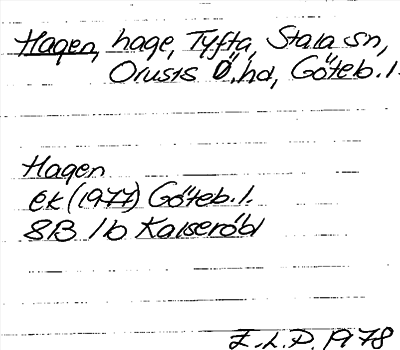 Hagen, hage, Tyfta, Stala sn,
Orusts Ö.hd, Göteb.l.
Hagen
ek (1977) Göteb.l.
8B 1b Kaiseröbl
E.L.P. 1978